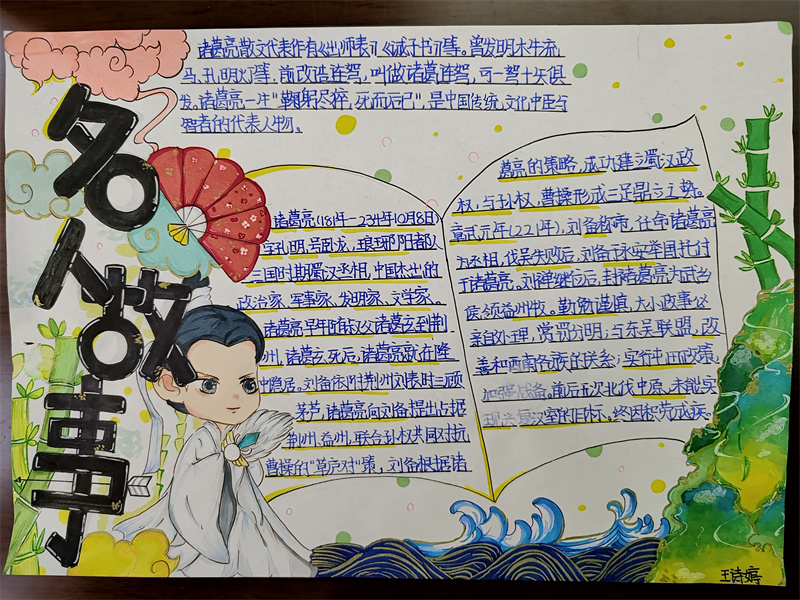 名人做事
诸葛亮散文代表作有《出师表》《诫子书》等。曾发明木牛流
马、孔明灯等，前改造连弩，叫做诸葛连弩，可一弩十矢俱
发。诸葛亮一生“鞠躬尽瘁，死而后已”，是中国传统文化中臣与
智者的代表人物。
诸葛亮(181年-234年10月8日)
字孔明，号卧龙，琅琊阳都人
三国时期蜀汉丞相，中国杰出的
政治家、军事家、发明家、文学家。
诸葛亮早年随叔父诸葛玄到荆
州，诸葛玄死后，诸葛亮就在隆
中隐居，刘备依附荆州刘表时三顾
茅芦，诸葛亮向刘备提出占据
荆州、益州，联合孙权共同对抗
曹操的“草庐对”策，刘备根据诸
葛亮的策略，成功建立蜀汉政
权，与孙权，曹操形成三足鼎立之势。
章武元年(221年)，刘备称帝，任命诸葛亮
为丞相，伐吴失败后，刘备于永安举国托付
于诸葛亮。刘禅继位后，封诸葛亮为武乡
侯，领益州牧。勤勉谨慎，大小政事必
亲自处理，赏罚分明；与东吴联盟，改
善和西南各族的关系；实行屯田政策，
加强战备。前后五次北伐中原，未能实
现兴复汉室的目标。终因积劳成疾。
王诗婷